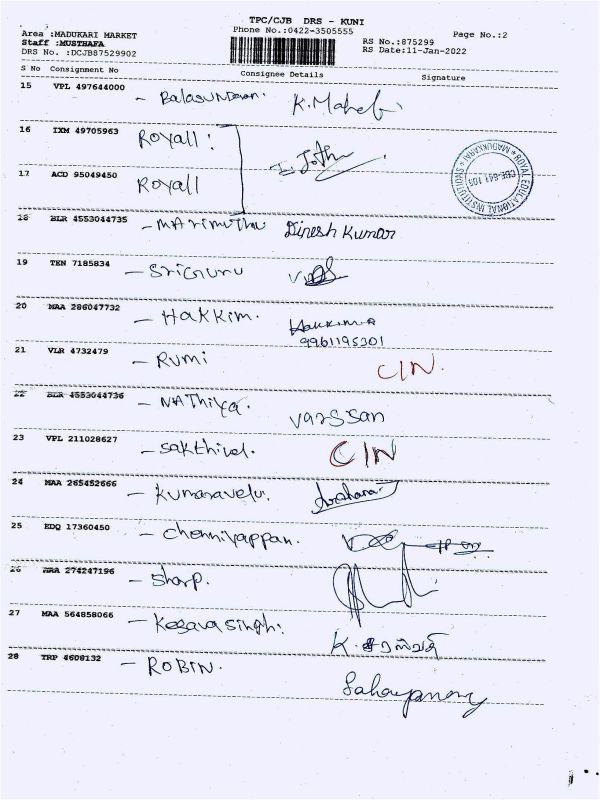 TPC/CJB DRS - KUNI
Area :MADUKARI MARKET Phone No.:0422-3505555 Page No.:2
Staff :MUSTHAFA RS No.:875299
DRS No. :DCJB87529902 RS Date:11-Jan-2022
S No Consignment No Consignee Details Signature
15 VPL 497644000 - Balasundaram. K.Mahe
16 IXM 49705963 Royall :
17 ACD 95049450 Royall
ROYAL EDUCATIONAL INSTITUTIONS * MADUKKARAI * CBE-641 105
18 BLR 4553044735 - Marimuthu Dinesh Kumar
19 TEN 7185834 - Sriguru
20 MAA 286047732 - Hakkim. Hakkim.A
9961195301
21 VLR 4732479 - Rumi CIN.
22 BLR 4553044736 - Nathiya. Varssan
23 VPL 211028627 - Sakthivel. CIN
24 MAA 265452666 - Kumaravelu.
25 EDQ 17360450 - Chenniyappan.
26 HRA 274247196 - Sharp.
27 MAA 564858066 - Kesava singh. K.
28 TRP 4608132 - ROBIN.